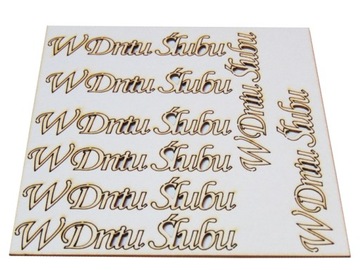 W Dniu Ślubu
W Dniu Ślubu
W Dniu Ślubu
W Dniu Ślubu
W Dniu Ślubu
W Dniu Ślubu
W Dniu Ślubu
W Dniu Ślubu